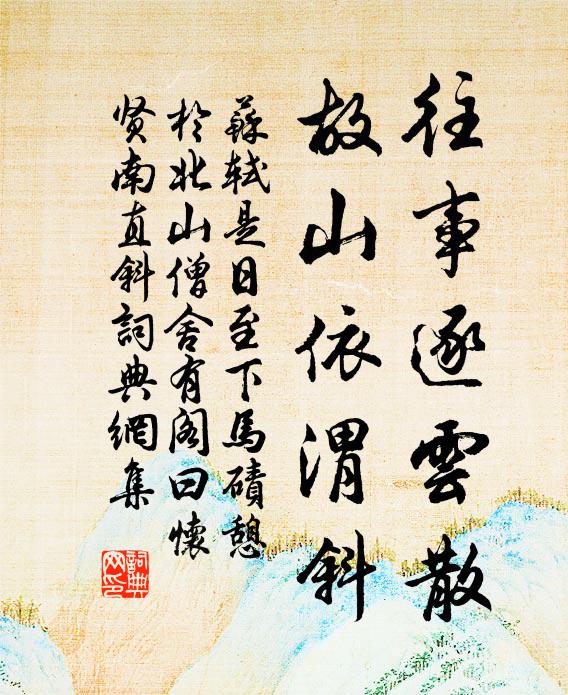 往事逐雲散
故山依渭斜
蘇軾是日至下馬磧憩
於北山僧舍有閣曰懷
贤南直斜詞典網集
詞典
网印